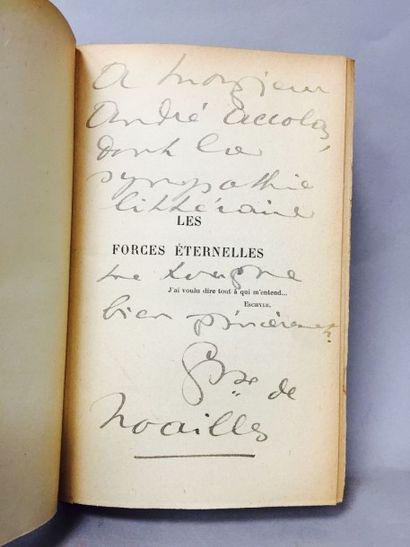 A Monsieur
André Accolas,
dont la
sympathie
littéraire
LES
FORCES ÉTERNELLES
me touche
J'ai voulu dire tout à qui m'entend...
ESCHYLE.
bien
Ctsse de
Noailles